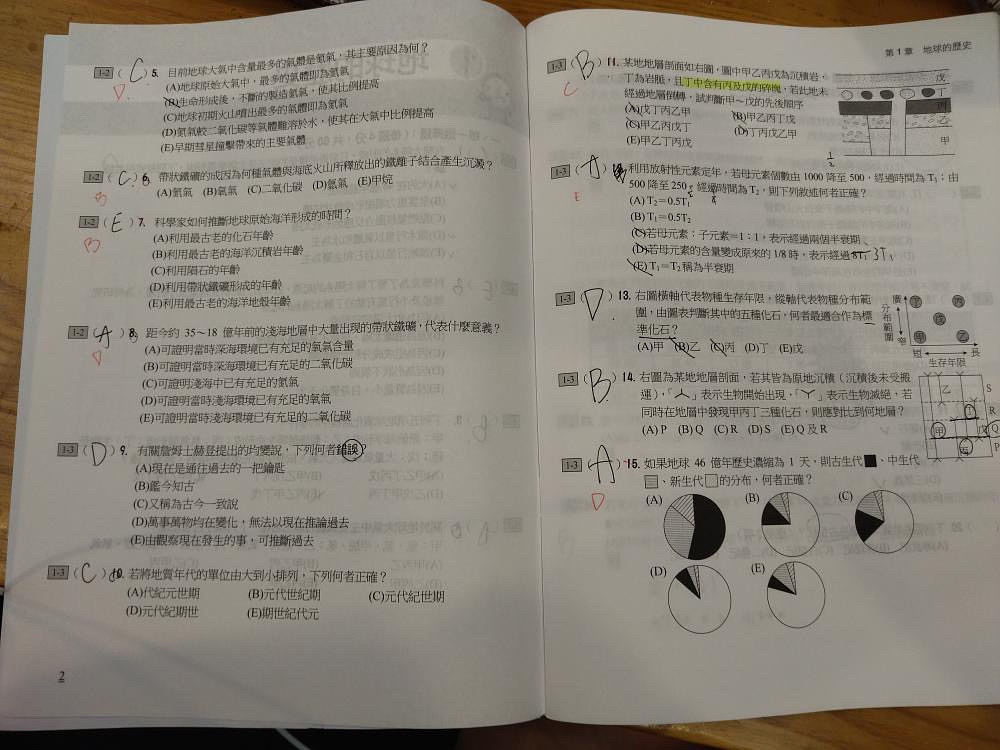 1-2 ( C ) 5. 目前地球大氣中含量最多的氣體是氮氣，其主要原因為何？
D
(A)地球原始大氣中，最多的氣體即為氮氣
(B)生命形成後，不斷的製造氮氣，使其比例提高
(C)地球初期火山噴出最多的氣體即為氮氣
(D)氮氣較二氧化碳等氣體難溶於水，使其在大氣中比例提高
(E)早期彗星撞擊帶來的主要氣體
1-2 ( C ) 6. 帶狀鐵礦的成因為何種氣體與海底火山所釋放出的鐵離子結合產生沉澱？
B
(A)氫氣 (B)氧氣 (C)二氧化碳 (D)氮氣 (E)甲烷
1-2 ( E ) 7. 科學家如何推斷地球原始海洋形成的時間？
B
(A)利用最古老的化石年齡
(B)利用最古老的海洋沉積岩年齡
(C)利用隕石的年齡
(D)利用帶狀鐵礦形成的年齡
(E)利用最古老的海洋地殼年齡
1-2 ( A ) 8. 距今約 35~18 億年前的淺海地層中大量出現的帶狀鐵礦，代表什麼意義？
D
(A)可證明當時深海環境已有充足的氧氣含量
(B)可證明當時深海環境已有充足的二氧化碳
(C)可證明淺海中已有充足的氮氣
(D)可證明當時淺海環境已有充足的氧氣
(E)可證明當時淺海環境已有充足的二氧化碳
1-3 ( D ) 9. 有關詹姆士赫登提出的均變說，下列何者錯誤？
(A)現在是通往過去的一把鑰匙
(B)鑑今知古
(C)又稱為古今一致說
(D)萬事萬物均在變化，無法以現在推論過去
(E)由觀察現在發生的事，可推斷過去
1-3 ( C ) 10. 若將地質年代的單位由大到小排列，下列何者正確？
(A)代紀元世期 (B)元代世紀期 (C)元代紀世期
(D)元代紀期世 (E)期世紀代元
2
第 1 章 地球的歷史
1-3 ( B ) 11. 某地地層剖面如右圖，圖中甲乙丙戊為沉積岩，
C
丁為岩脈，且丁中含有丙及戊的碎塊，若此地未
經過地層倒轉，試判斷甲～戊的先後順序
(A)戊丁丙乙甲 (B)甲乙丙丁戊
(C)甲乙丙戊丁 (D)丁丙戊乙甲
(E)甲乙戊丁丙
戊
丁
丙
乙
甲
1-3 ( A ) 12. 利用放射性元素定年，若母元素個數由 1000 降至 500，經過時間為 T₁；由
E
500 降至 250，經過時間為 T₂，則下列敘述何者正確？
(A) T₂＝0.5T₁
(B) T₁＝0.5T₂
(C)若母元素：子元素＝1：1，表示經過兩個半衰期
(D)若母元素的含量變成原來的 1/8 時，表示經過 8T₁ 3T₁
(E) T₁＝T₂ 稱為半衰期
1-3 ( D ) 13. 右圖橫軸代表物種生存年限，縱軸代表物種分布範
圍，由圖表判斷其中的五種化石，何者最適合作為標
準化石？
(A)甲 (B)乙 (C)丙 (D)丁 (E)戊
廣
分布範圍
窄
丁 丙
戊
甲 乙
短 長
生存年限
1-3 ( B ) 14. 右圖為某地地層剖面，若其皆為原地沉積（沉積後未受搬
運），「 」表示生物開始出現，「 」表示生物滅絕，若
同時在地層中發現甲丙丁三種化石，則應對比到何地層？
(A) P (B) Q (C) R (D) S (E) Q 及 R
乙
丁
甲
戊
丙
S
R
Q
P
1-3 ( A ) 15. 如果地球 46 億年歷史濃縮為 1 天，則古生代 、中生代
D
、新生代 的分布，何者正確？
(A) (B) (C)
(D) (E)